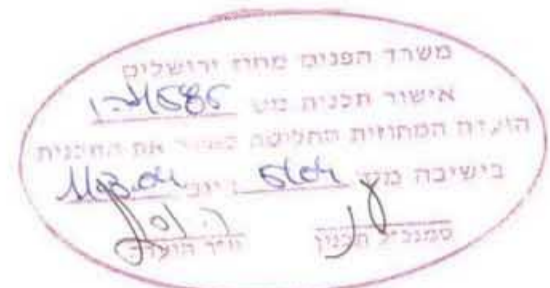 משרד הפנים מחוז ירושלים
אישור תכנית מס'
הועדה המחוזית החליטה לאשר את התכנית
בישיבה מס' 5/04 ביום 11.3.04
סמנכ"ל תכנון יו"ר הועדה